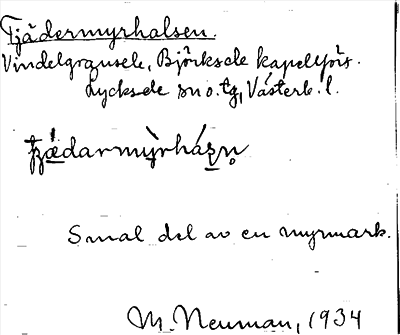 Tjädermyrhalsen.
Vindelgransele, Björksele kapellförs.
Lycksele sn o. tg, Västerb. l.
Smal del av en myrmark.
M. Neuman, 1934